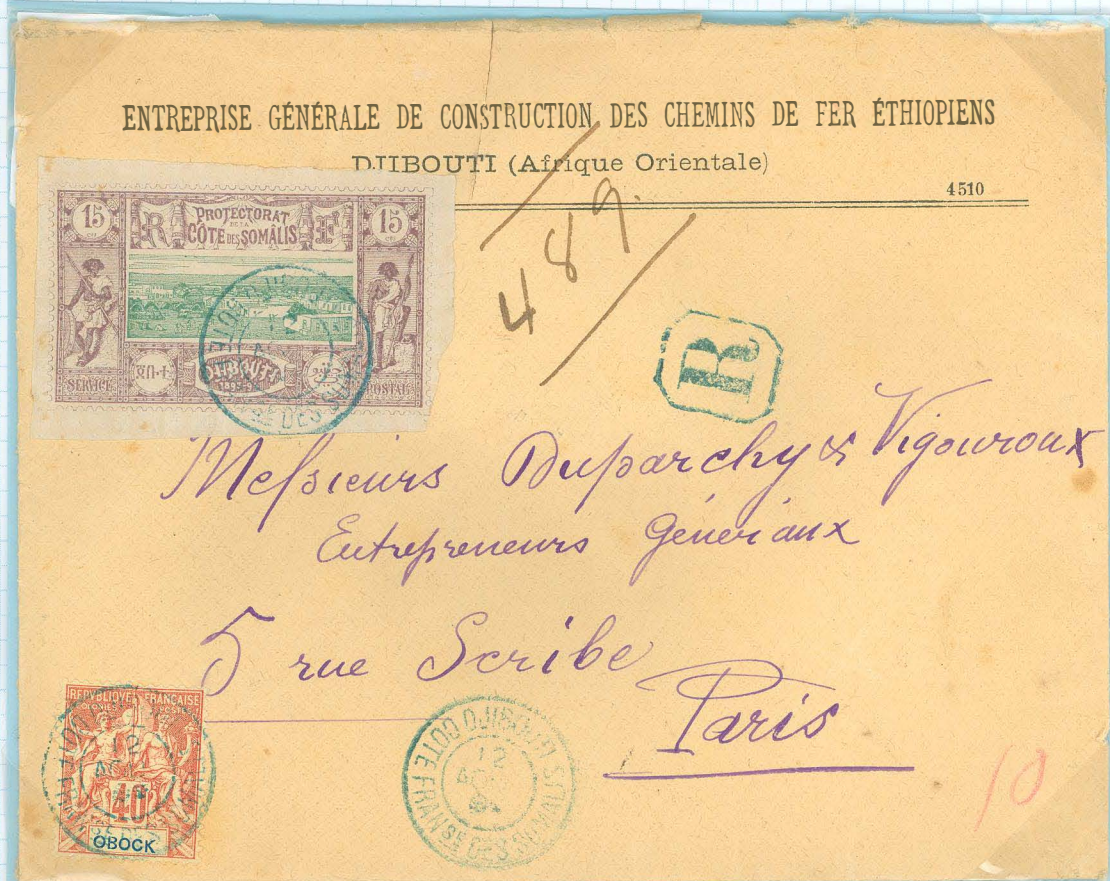 ENTREPRISE GÉNÉRALE DE CONSTRUCTION DES CHEMINS DE FER ÉTHIOPIENS
DJIBOUTI (Afrique Orientale)
4510
15 R PROTECTORAT DE LA CÔTE DES SOMÂLIS F 15
DJIBOUTI
SERVICE POSTAL
489.
R
Messieurs Duparchy & Vigouroux
Entrepreneurs Généraux
5 rue Scribe
Paris
REPUBLIQUE FRANÇAISE
COLONIES POSTES
40
OBOCK
DJIBOUTI
12
COTE FRANSE DES SOMALIS
10